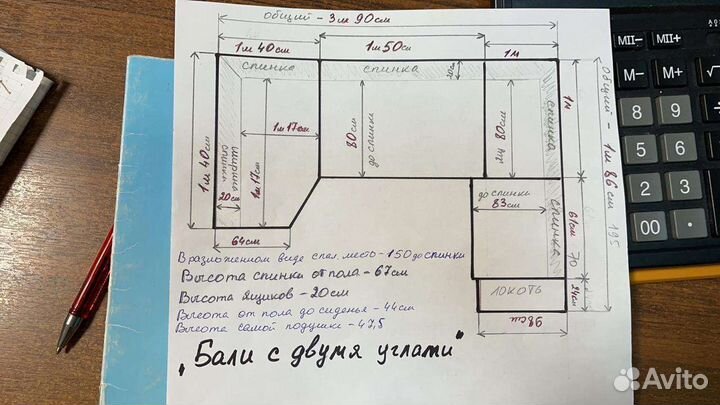 общий - 3м 90см
1м 40см
1м50см
1м
спинка
спинка
20см
1м
1м 17см
80см
до спинки
80см
спинка
1м 40см
ширина спинки
20см
1м17см
Общий - 1м 86см 195
до спинки
83см
спинка
61см
70
64см
локоть
24см
98см
В разложенном виде спал. место - 150 до спинки
Высота спинки от пола - 67см
Высота ящиков - 20см
Высота от пола до сиденья - 44см
Высота самой подушки - 47,5
"Бали с двумя углами"
MII-
MII=
M-
M+
√
8
9
5
6
2
3
00
•
Avito